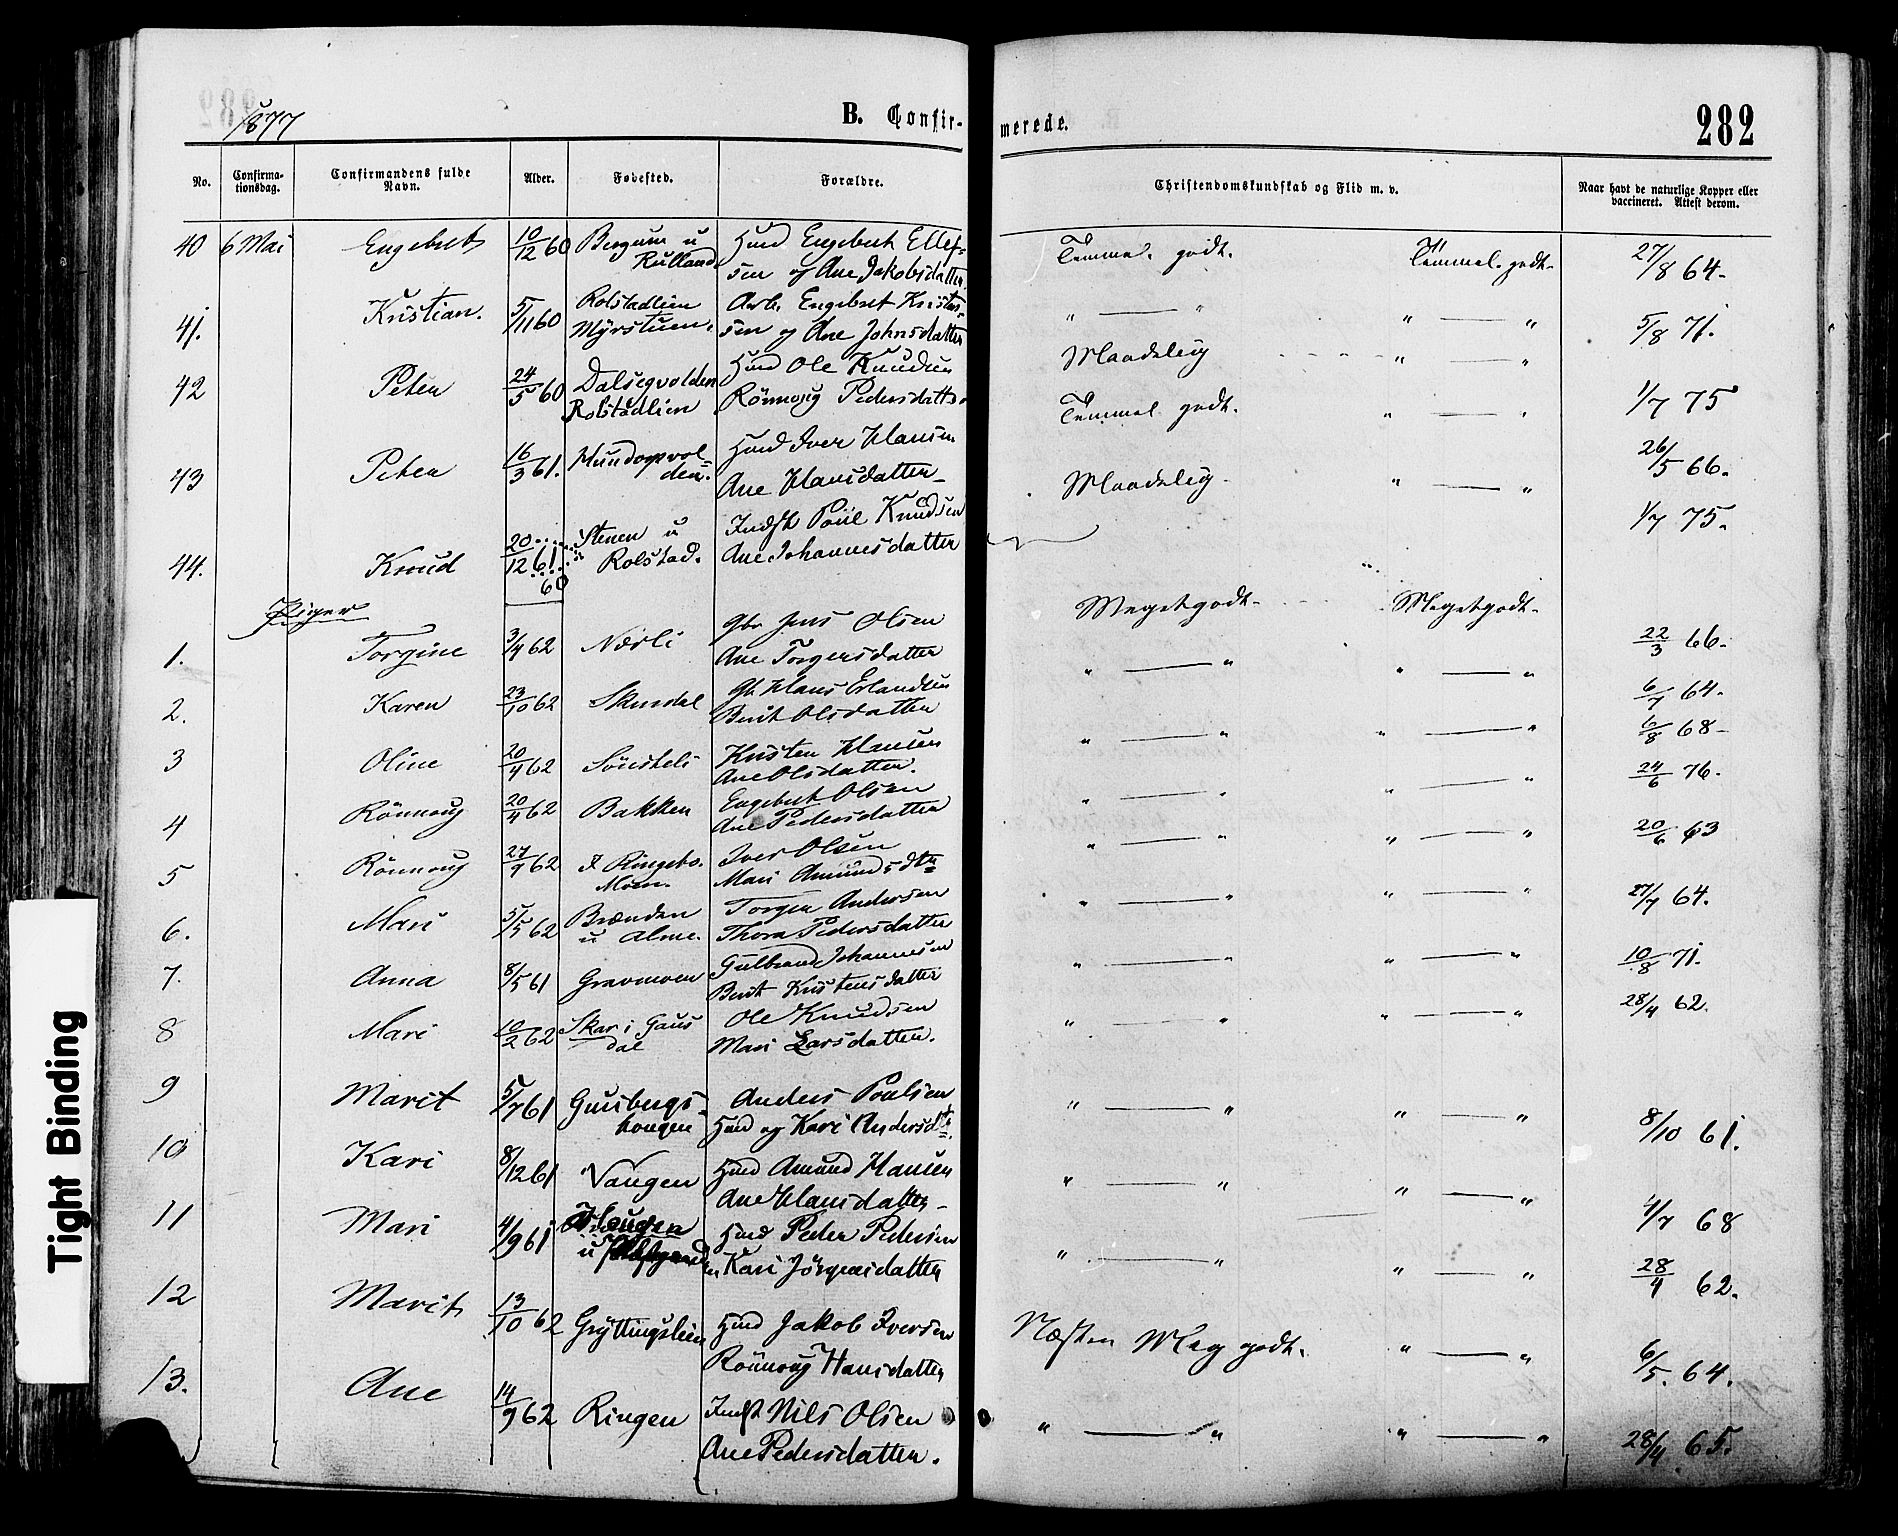 1877
B. Confir-
merede.
282
No.
Confirma-
tionsdag.
Confirmandens fulde
Navn.
Alder.
Fødested.
Forældre.
Christendomskundskab og Flid m. v.
Naar havt de naturlige Kopper eller
vaccineret. Attest derom.
40 6 Mai Engebret 10/12 60 Bergum u Husd Engebret Ellef- Temmel. godt. Temmel. godt. 27/8 64.
sen og Ane Jakobsdatter
41. Kristian. 5/11 60 Rolstadlien Arb. Engebret Kristen- " — " " — " 5/8 71.
Myrstuen. sen og Ane Johnsdatter
42 Peter 24/5 60 Dalsegvolden Husd Ole Knudsen Maadelig " — " 1/7 75
Rolstadlien Rönnoug Pedersdatter
43 Peter 16/3 61. Hundorpvol- Husd Iver Hansen Temmel godt. " — " 26/5 66.
den. Ane Hansdatter
44. Knud 20/12 61. Stenen u Indst Poul Knudsen Maadelig " — " 1/7 75.
60 Rolstad. Ane Johannesdatter
Piger
1. Torgine 3/4 62 Nørli Gbr Jens Olsen Megetgodt. Megetgodt. 22/3 66.
Ane Torgersdatter
2. Karen 23/10 62 Gb. Hans Erlandsen " — " " — " 6/7 64.
Berit Olsdatter
3 Oline 20/4 62 Kristen Hansen " — " " — " 6/8 68
Ane Olsdatter.
4 Rönnoug 20/4 62 Bakken Engebret Olsen " — " " — " 24/6 76.
Ane Pedersdatter
5 Rönnoug 27/9 62 Ringebo. Iver Olsen " — " " — " 20/6 63
Moen. Mari Amundsdtr
6. Mari 5/5 62 Brænden Torger Andersen " — " " — " 27/7 64.
u Alme. Thora Pedersdatter
7. Anna 8/5 61 Gravmoen Gulbrand Johannesen " — " " — " 10/8 71.
Berit Kristensdatter
8 Mari 10/2 62 Skar i Gaus Ole Knudsen " — " " — " 28/4 62.
dal Mari Larsdatter.
9 Marit 5/7 61 Gunsbergs- Anders Poulsen " — " " — " 8/10 61.
hougen Husd og Kari Andersdtr.
10 Kari 8/12 61 Vangen Husd Amund Hansen " — " " — " 4/7 68
Ane Hansdatter
11 Mari 4/9 61 Haugen Husd Peder Pedersen " — " " — " 28/4 62.
u Kari Jörgensdatter
12 Marit 13/10 62 Gryttingslien Husd Jakob Iversen Næsten Meg godt. " — " 6/5. 64.
Rönnoug Hansdatter
13. Ane 14/9 62 Ringen Indst Nils Olsen " — " " — " 28/4 65.
Ane Pedersdatter.
Tight Binding